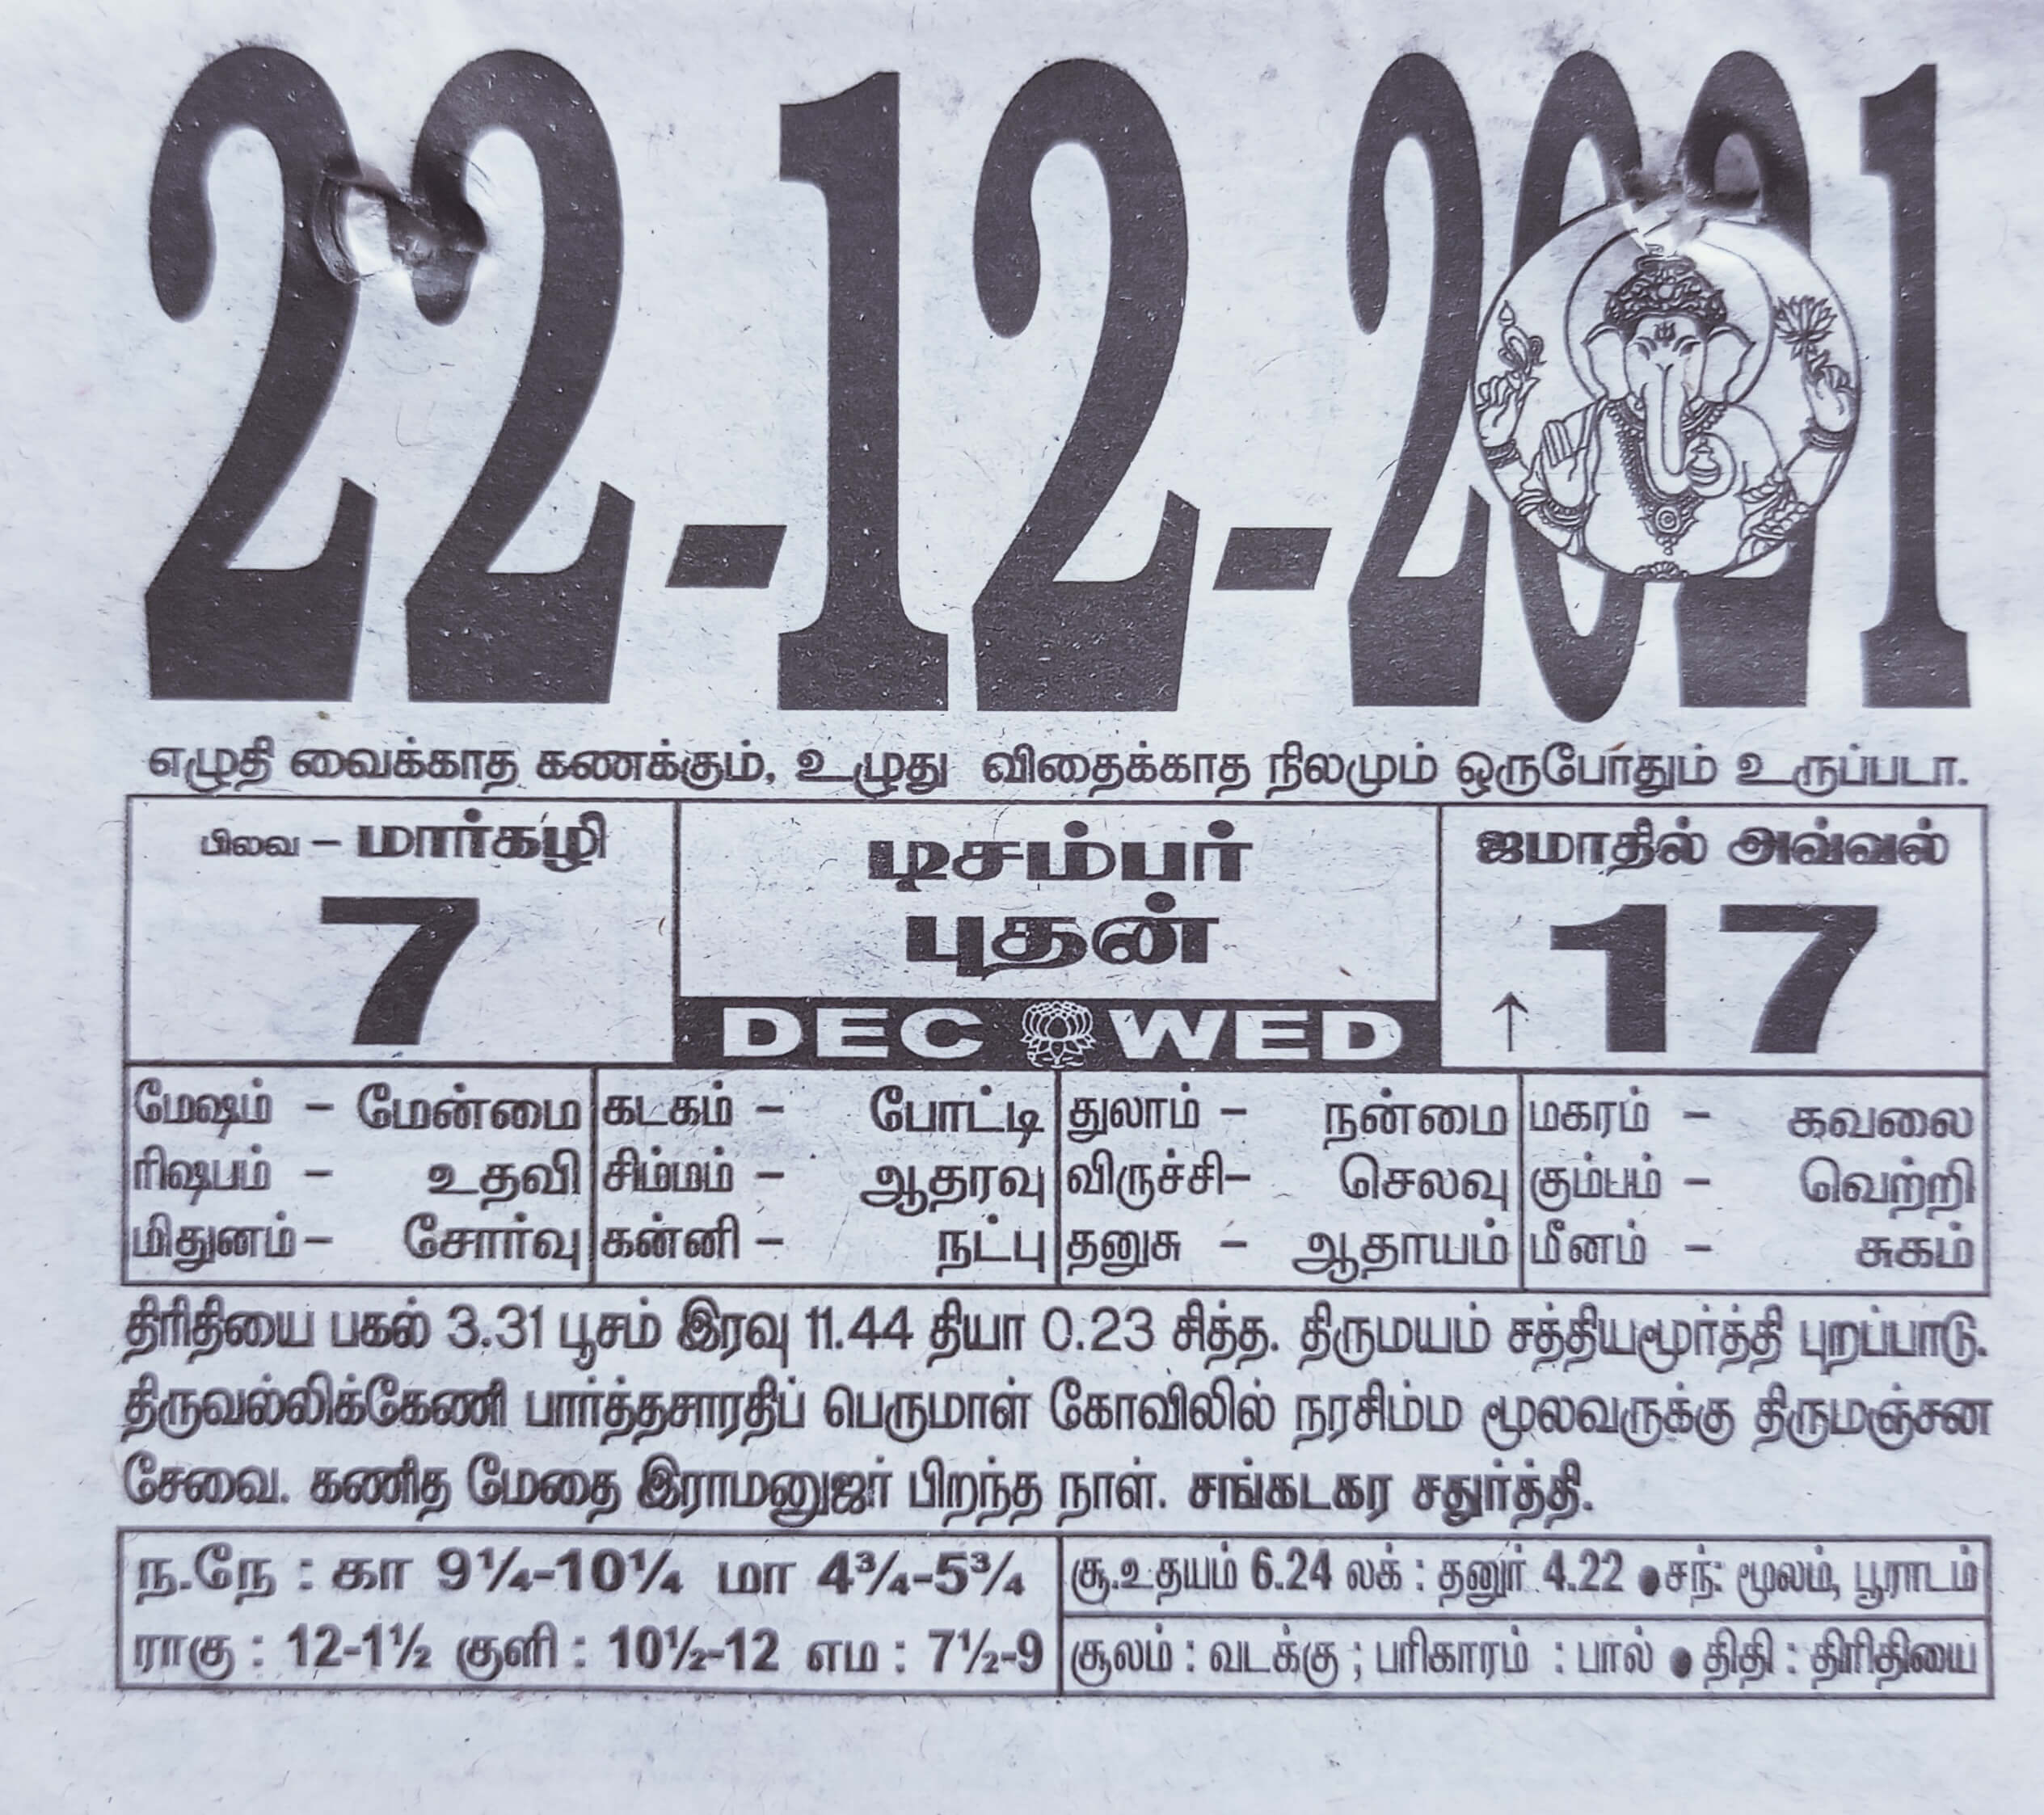 22-12-2021
எழுதி வைக்காத கணக்கும், உழுது விதைக்காத நிலமும் ஒருபோதும் உருப்படா.
பிலவ - மார்கழி
7
டிசம்பர்
புதன்
DEC WED
ஜமாதில் அவ்வல்
↑ 17
மேஷம் - மேன்மை
ரிஷபம் - உதவி
மிதுனம் - சோர்வு
கடகம் - போட்டி
சிம்மம் - ஆதரவு
கன்னி - நட்பு
துலாம் - நன்மை
விருச்சி- செலவு
தனுசு - ஆதாயம்
மகரம் - கவலை
கும்பம் - வெற்றி
மீனம் - சுகம்
திரிதியை பகல் 3.31 பூசம் இரவு 11.44 தியா 0.23 சித்த. திருமயம் சத்தியமூர்த்தி புறப்பாடு.
திருவல்லிக்கேணி பார்த்தசாரதிப் பெருமாள் கோவிலில் நரசிம்ம மூலவருக்கு திருமஞ்சன
சேவை. கணித மேதை இராமனுஜர் பிறந்த நாள். சங்கடகர சதுர்த்தி.
ந.நே : கா 9¼-10¼ மா 4¾-5¾
ராகு : 12-1½ குளி : 10½-12 எம : 7½-9
சூ.உதயம் 6.24 லக் : தனுர் 4.22 ● சந்: மூலம், பூராடம்
சூலம் : வடக்கு ; பரிகாரம் : பால் ● திதி : திரிதியை